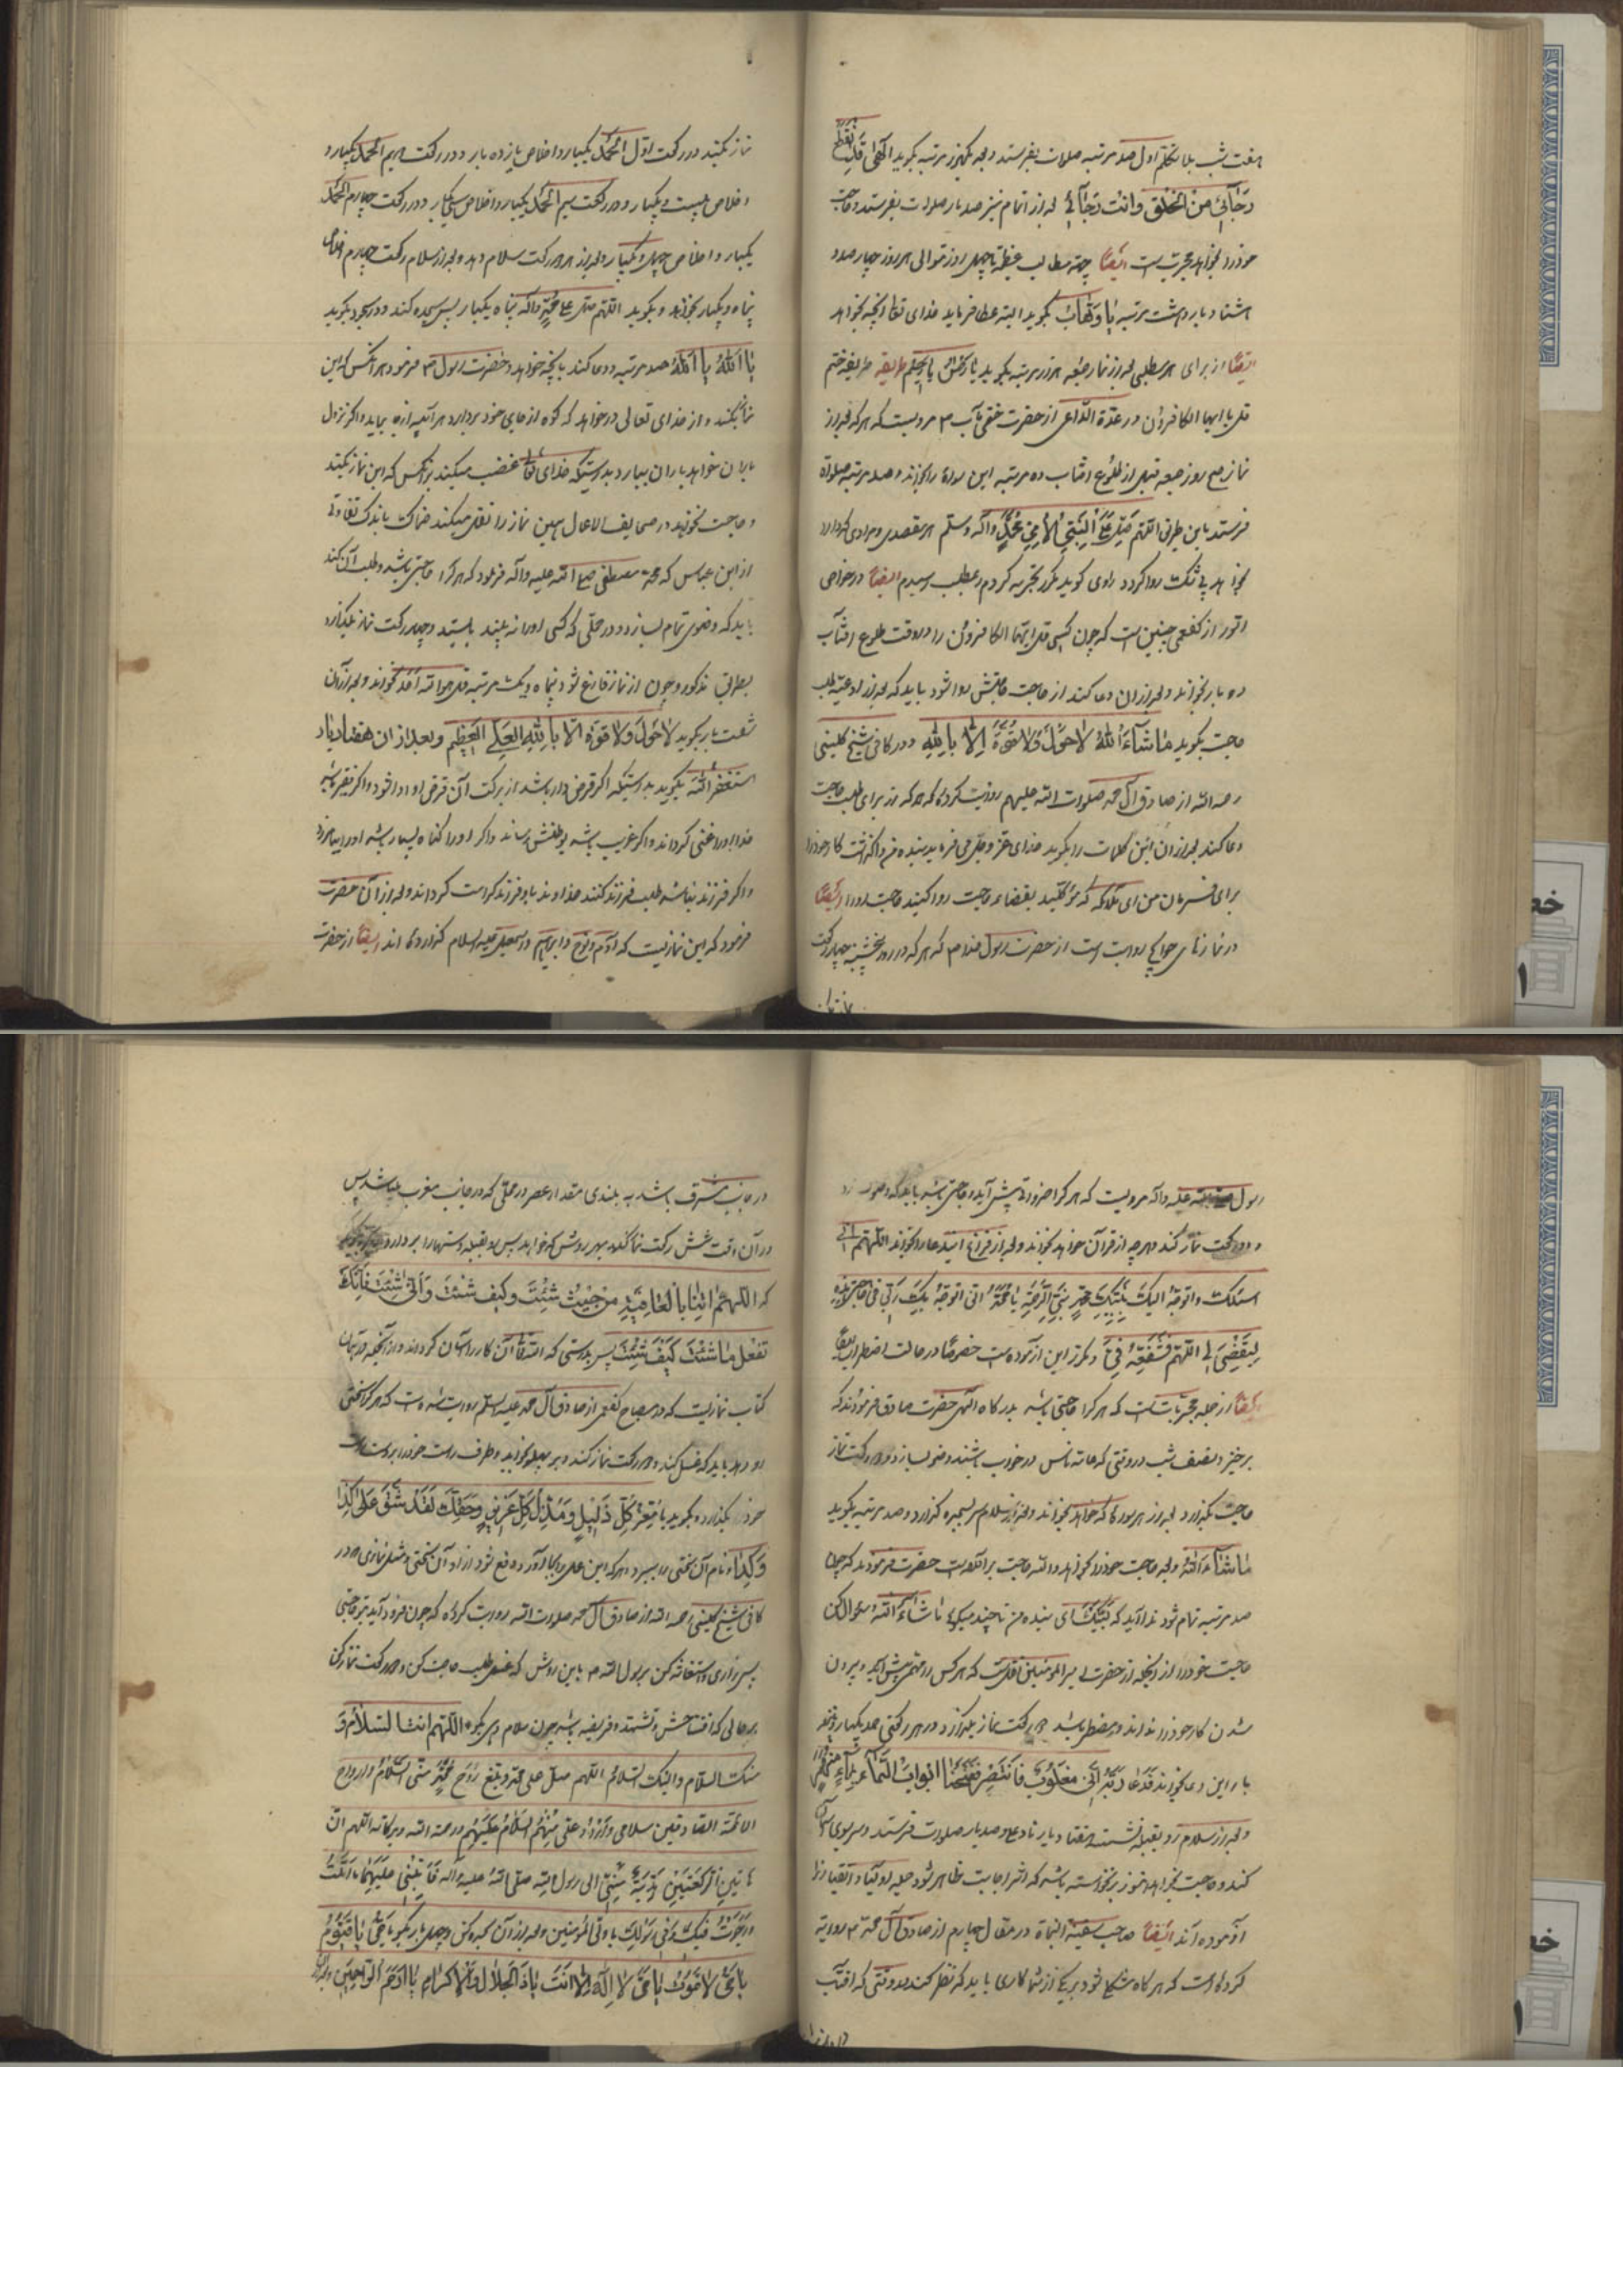 هفت شب بلا تکلم اول صد مرتبه صلوات بفرستد و بعد یکهزار مرتبه بگوید الهی قد انقطع
رجائی من الخلق وانت رجائی بعد از اتمام نیز صد بار صلوات بفرستد و حاجت
خود را بخواهد مجربست ایضا جهة مطالب عظیمه تا چهل روز متوالی هر روز چهار صد و
هشتاد بار و هشت مرتبه یا وهاب بگوید البته عطا فرماید خدای تعالی آنچه خواهد
ایضا از برای هر مطلبی بعد از نماز جمعه هزار مرتبه بگوید یا رحمن یا رحیم طریقه ختم
قل یا ایها الکافرون در عدة الداعی از حضرت ختمی مآب ص مرویست که هر که بعد از
نماز صبح روز جمعه قبل از طلوع افتاب ده مرتبه این سوره را بخواند و صد مرتبه صلواة
فرستد باین طریق اللهم صل علی النبی الامی محمد واله وسلم هر مقصدی و مرادی که دارد
بخواهد بی شک روا گردد راوی گوید مکرر تجربه کردم و بمطلب رسیدم ایضا در خواص
از کفعمی چنین است که چون کسی قل یا ایها الکافرون را در وقت طلوع افتاب
ده بار بخواند و بعد از ان دعا کند از حاجت حاجتش روا شود باید که بعد از ادعیه طلب
حاجت بگوید ماشاء الله لا حول ولا قوة الا بالله و در کافی شیخ کلینی
رحمه الله از صادق آل محمد صلوات الله علیهم روایت کرده که هر که از برای طلب حاجت
دعا کند بعد از ان این کلمات را بگوید خدای عز و جل می فرماید بنده من واگذاشت کار خود را
برای فرمان من ای ملائکه که موکلید بقضاء حاجت روا کنید حاجت او را ایضا
در نماز های حوایج روایت است از حضرت رسول خدا ص که هر که در روز پنجشنبه چهار رکعت
نماز بکند در رکعت اول الحمد یکبار و اخلاص یازده بار و در رکعت دویم الحمد یکبار و
اخلاص بیست و یکبار و در رکعت سیم الحمد یکبار و اخلاص سی و یکبار و در رکعت چهارم الحمد
یکبار و اخلاص چهل و یکبار و بعد از هر دو رکعت سلام دهد و بعد از سلام رکعت چهارم اخلاص
پنجاه و یکبار بخواند و بگوید اللهم صل علی محمد و آله پنجاه یکبار پس سجده کند و در سجود بگوید
یا الله یا الله صد مرتبه و دعا کند بانچه خواهد و حضرت رسول ص فرمود هر آنکس که این
نماز بکند و از خدای تعالی درخواهد که کوه از جای خود بردارد هر آینه از جا بیاید و اگر نزول
باران خواهد باران ببارد بدرستیکه خدای تعالی غضب میکند بر آنکس که این نماز بکند
و حاجت نخواهد در صحایف الاعمال همین نماز را نقل میکند باندک تفاوتی
از ابن عباس که محمد مصطفی صلی الله علیه و آله فرمود که هر کرا حاجتی باشد و طلب آن کند
باید که وضوی تمام بسازد و در محلی که کسی او را نه بیند بایستد و چهار رکعت نماز بگذارد
بطریق مذکور و چون از نماز فارغ شود پنجاه و یک مرتبه قل هو الله احد بخواند و بعد از آن
شصت بار بگوید لا حول ولا قوة الا بالله العلی العظیم و بعد از ان هفتاد بار
استغفر الله بگوید بدرستیکه اگر قرض دار باشد از برکت آن قرض او ادا شود و اگر فقیر باشد
خدا او را غنی گرداند و اگر غریب باشد بوطنش رساند و اگر او را گناه بسیار باشد او را بیامرزد
و اگر فرزند نباشد و طلب فرزند کند خداوند باو فرزند کرامت گرداند و بعد از آن حضرت
فرمود که این نمازیست که آدم و نوح و ابراهیم و اسمعیل علیه السلام گذارده اند ایضا از حضرت
رسول صلی الله علیه و آله مرویست که هر کرا ضرورتی پیش آید و حاجتی باشد باید که وضو
و دو رکعت نماز کند و هر چه از قرآن خواهد بخواند و بعد از فراغ این دعا را بخواند اللهم انی
اسئلک واتوجه الیک بنبیک محمد نبی الرحمة یا محمد انی اتوجه بک الی ربی فی حاجتی هذه
لیقضی لی اللهم فشفعه فی و مکرر این آزموده است خصوصا در حالت اضطرار
ایضا از جمله مجربات است که هر کرا حاجتی باشد بدرگاه الهی حضرت صادق فرمودند که
برخیزد نصف شب در وقتی که عامه ناس در خواب باشند وضو بسازد و دو رکعت نماز
حاجت بگذارد بعد از هر سوره که خواهد بخواند و بعد از سلام سر بسجده گذارد و صد مرتبه بگوید
ماشاء الله و بعد حاجت خود را بخواهد و الله حاجت برآورده است حضرت فرمودند که چون
صد مرتبه تمام شود ندا آید که لبیک ای بنده من تا چند میگوئی ماشاء الله سؤال کن
حاجت خود را از آنجمله از حضرت امیر المومنین نقلست که هر کس را مهمی پیش آید و بیرون
شدن کار خود را نداند و مضطر باشد دو رکعت نماز بگذارد و در هر رکعتی حمد یکبار و پنجاه
بار این دعا بخواند فدعا ربه انی مغلوب فانتصر ففتحنا ابواب السماء بماء منهمر
و بعد از سلام رو بقبله نشسته هفتاد بار ناد علی و صد بار صلوات فرستد و سر بسوی آسمان
کند و حاجت بخواهد هنوز برنخواسته باشد که اثر اجابت ظاهر شود جمله اولیا و اتقیا او را
آزموده اند ایضا صاحب سفینة النجاة در مقال چهارم از صادق آل محمد ص روایة
کرده است که هر گاه مشکل شود بر یکی از شما کاری باید که نظر کند بوقتی که افتاب
در جانب مشرق باشد به بلندی مقدار عصر در محلی که در جانب مغرب میباشد پس
در آن وقت شش رکعت نماز گذارد بهر روش که خواهد پس رو بقبله دستها را بردارد و بگوید
که اللهم اتنا بالعافیة من حیث شئت وکیف شئت وانی شئت فانک
تفعل ما شئت کیف شئت پس بدرستی که الله تعالی آن کار را آسان گرداند و از آنجمله در همان
کتاب نمازیست که در مصباح کفعمی از صادق آل محمد علیه السلم روایت شده است که هر کرا سختی
رو دهد باید که غسل کند و دو رکعت نماز کند و بر پهلو بخوابد و طرف راست خود را بر دست راست
خود بگذارد و بگوید یا معز کل ذلیل ومذل کل عزیز وحقک لقد شق علی کذا
وکذا و نام آن سختی را ببرد و هر که این عمل را بجا آورد دفع شود از او آن سختی و مثل نمازی که در
کافی شیخ کلینی رحمه الله از صادق آل محمد صلوات الله روایت کرده که چون فرود آید بتو حاجتی
پس زاری و استغاثه کن برسول الله ص باین روش که غسل طلب حاجت کن و دو رکعت نماز کن
بر حالی که افتتاحش و تشهد و فریضه باشد چون سلام دهی بگو اللهم انت السلام و
منک السلام والیک السلام اللهم صل علی محمد وبلغ روح محمد منی السلام وارواح
الائمة الصادقین سلامی واردد علی منهم السلام علیهم ورحمة الله وبرکاته اللهم ان
هاتین الرکعتین هدیة منی الی رسول الله صلی الله علیه واله فاثبنی علیهما ما املت
ورجوت فیک وفی رسولک یا ولی المومنین و بعد از آن سجده کن و چهل بار بگو یا حی یا قیوم
یا حی لا یموت یا حی لا اله الا انت یا ذا الجلال والاکرام یا ارحم الراحمین